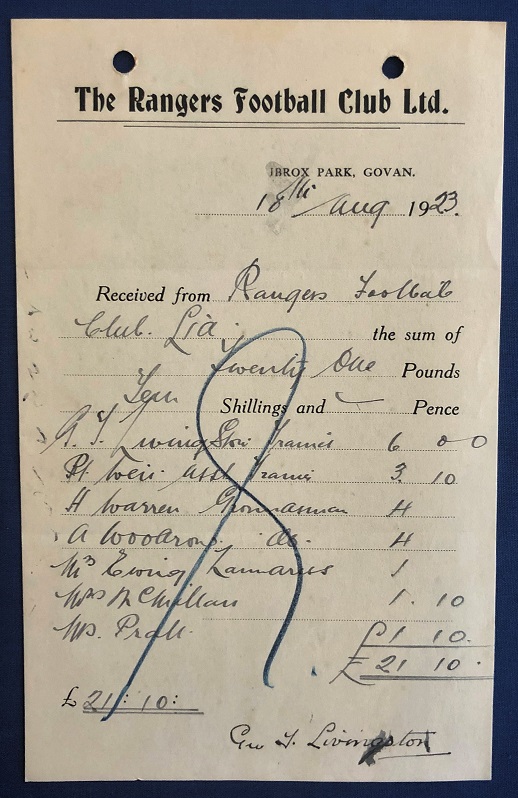 The Rangers Football Club Ltd.
IBROX PARK, GOVAN.
18th Aug 1923.
Received from Rangers Football
Club. Ltd. the sum of
Twenty One Pounds
Ten Shillings and — Pence
G. T. Livingston 6 0 0
Rt Weir Asst 3 10
H Warren Groundsman 4
A Woodrow. do. 4
Mrs Ewing 1
Mrs McMillan 1. 10
Ms. Pratt £1 10.
£ 21 10.
£ 21: 10:
Geo T. Livingston